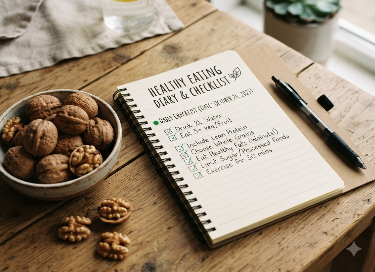 HEALTHY EATING
DIARY & CHECKLIST
DAILY CHECKLIST (DATE: OCTOBER 26, 2023)
Drink 2L Water
Eat 5+ Veg/Fruit
Include Lean Protein
Choose Whole Grains
Eat Healthy Fats (Walnuts!)
Limit Sugar/Processed Foods
Exercise for 30 mins